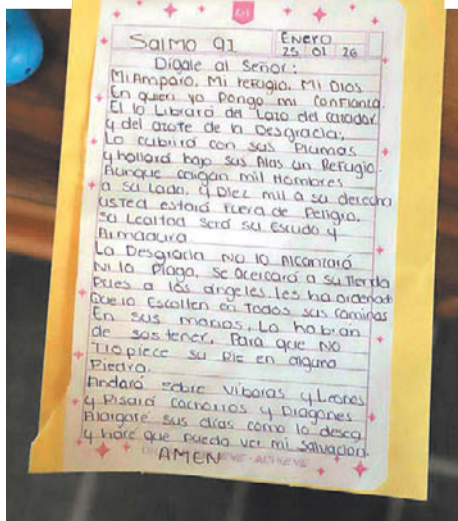 Salmo 91
Enero
25 01 26
Digale al Señor:
Mi Amparo, Mi refugio, Mi Dios
En quien yo Pongo mi Confianza.
El lo Librará del Lazo del cazador
y del azote de la Desgracia,
Lo cubrirá con sus Plumas
y hallará bajo sus Alas un Refugio.
Aunque caigan mil Hombres
a su Lado, y Diez mil a su derecha
usted estará Fuera de Peligro,
su Lealtad será su Escudo y
Armadura.
La Desgracia No lo Alcanzará
Ni la Plaga, se Acercará a su Tienda
Pues a los ángeles les ha ordenado
Que lo Escolten en Todos sus Caminos
En sus manos, Lo habrán
de sostener, Para que No
Tropiece su Pie en alguna
Piedra.
Andará sobre víboras y Leones
y Pisará cachorros y Dragones
Alargaré sus días como lo desea
y haré que pueda ver mi Salvación.
AMEN EVE - ACHIEVE